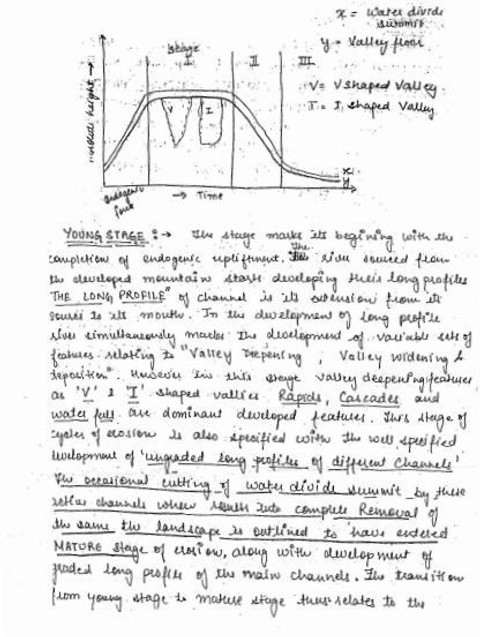 x = Water divide
summit
y = Valley floor
V = V shaped Valley
I = I shaped Valley
Stage
I II III
height
V I
x
y
endogenic
force
→ Time
YOUNG STAGE :→ The stage marks its begining with the
completion of endogenic upliftment. The river sourced from
the developed mountain starts developing their long profiles
"THE LONG PROFILE" of channel is its extension from its
source to its mouth. In the development of long profile
river simultaneously marks the development of variable sets of
features relating to "Valley Deepening, Valley widening &
Deposition". However in this stage valley deepening features
as 'V' & 'I' shaped vallies. Rapids, Cascades and
water fall are dominant developed features. This stage of
cycles of erosion is also specified with the well specified
development of 'ungraded long profiles of different channels'
The occasional cutting of water divide summit by these
active channels where results into complete Removal of
the same the landscape is outlined to have entered
MATURE stage of erosion, along with development of
graded long profiles of the main channels. The transition
from young stage to mature stage thus relates to the